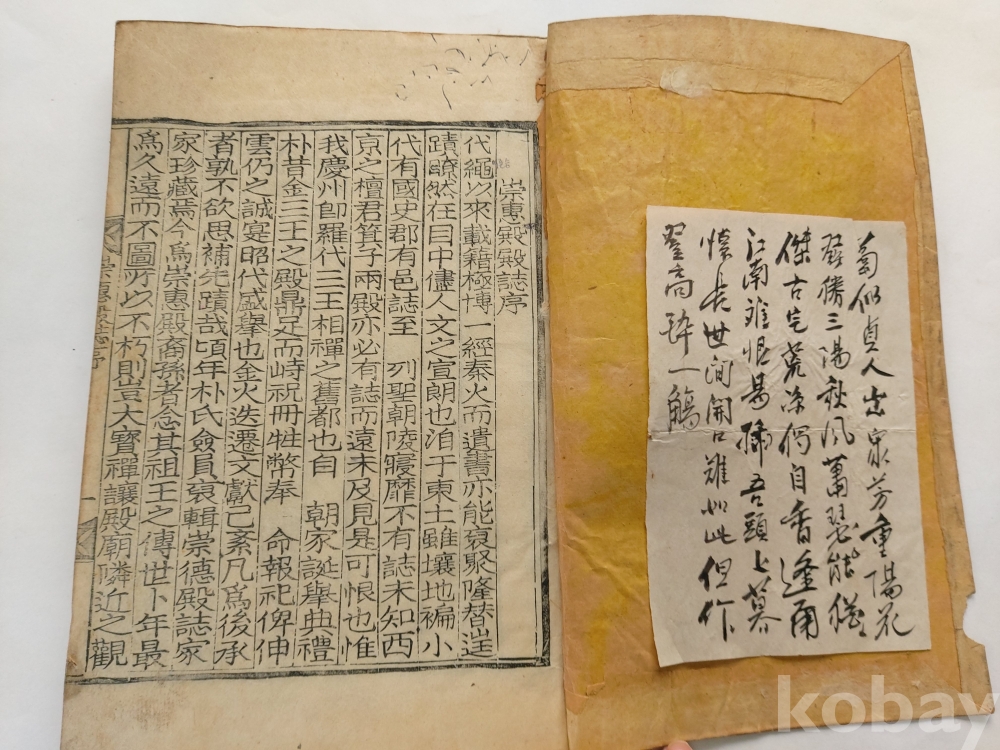 菊似貞人出衆芳重陽花
發勝三陽秋風蕭瑟能獨
傑古宅荒凉偶自香逢雨
江南難恨 吾頭上暮
懷長世間開口難如此但作
登高醉一觴
崇惠殿殿誌序
代繩以來載籍極博一經秦火而遺書亦能裒聚隆替
蹟瞭然在目中儘人文之宣朗也洎于東土雖壤地褊小
代有國史郡有邑誌至 列聖朝陵寢靡不有誌未知西
京之檀君箕子兩殿亦必有誌而遠未及見是可恨也惟
我慶州卽羅代三王相禪之舊都也自 朝家誕擧典禮
朴昔金三王之殿鼎足而峙祝冊牲幣奉 命報祀俾伸
雲仍之誠寔昭代盛擧也金火迭遷文獻已紊凡爲後承
者孰不欲思補先蹟哉頃年朴氏僉員裒輯崇德殿誌家
家珍藏焉今爲崇惠殿裔孫者念其祖王之傳世卜年最
爲久遠而不圖所以不朽則豈太寶禪讓殿廟隣近之觀
崇惠殿誌序
一
kobay